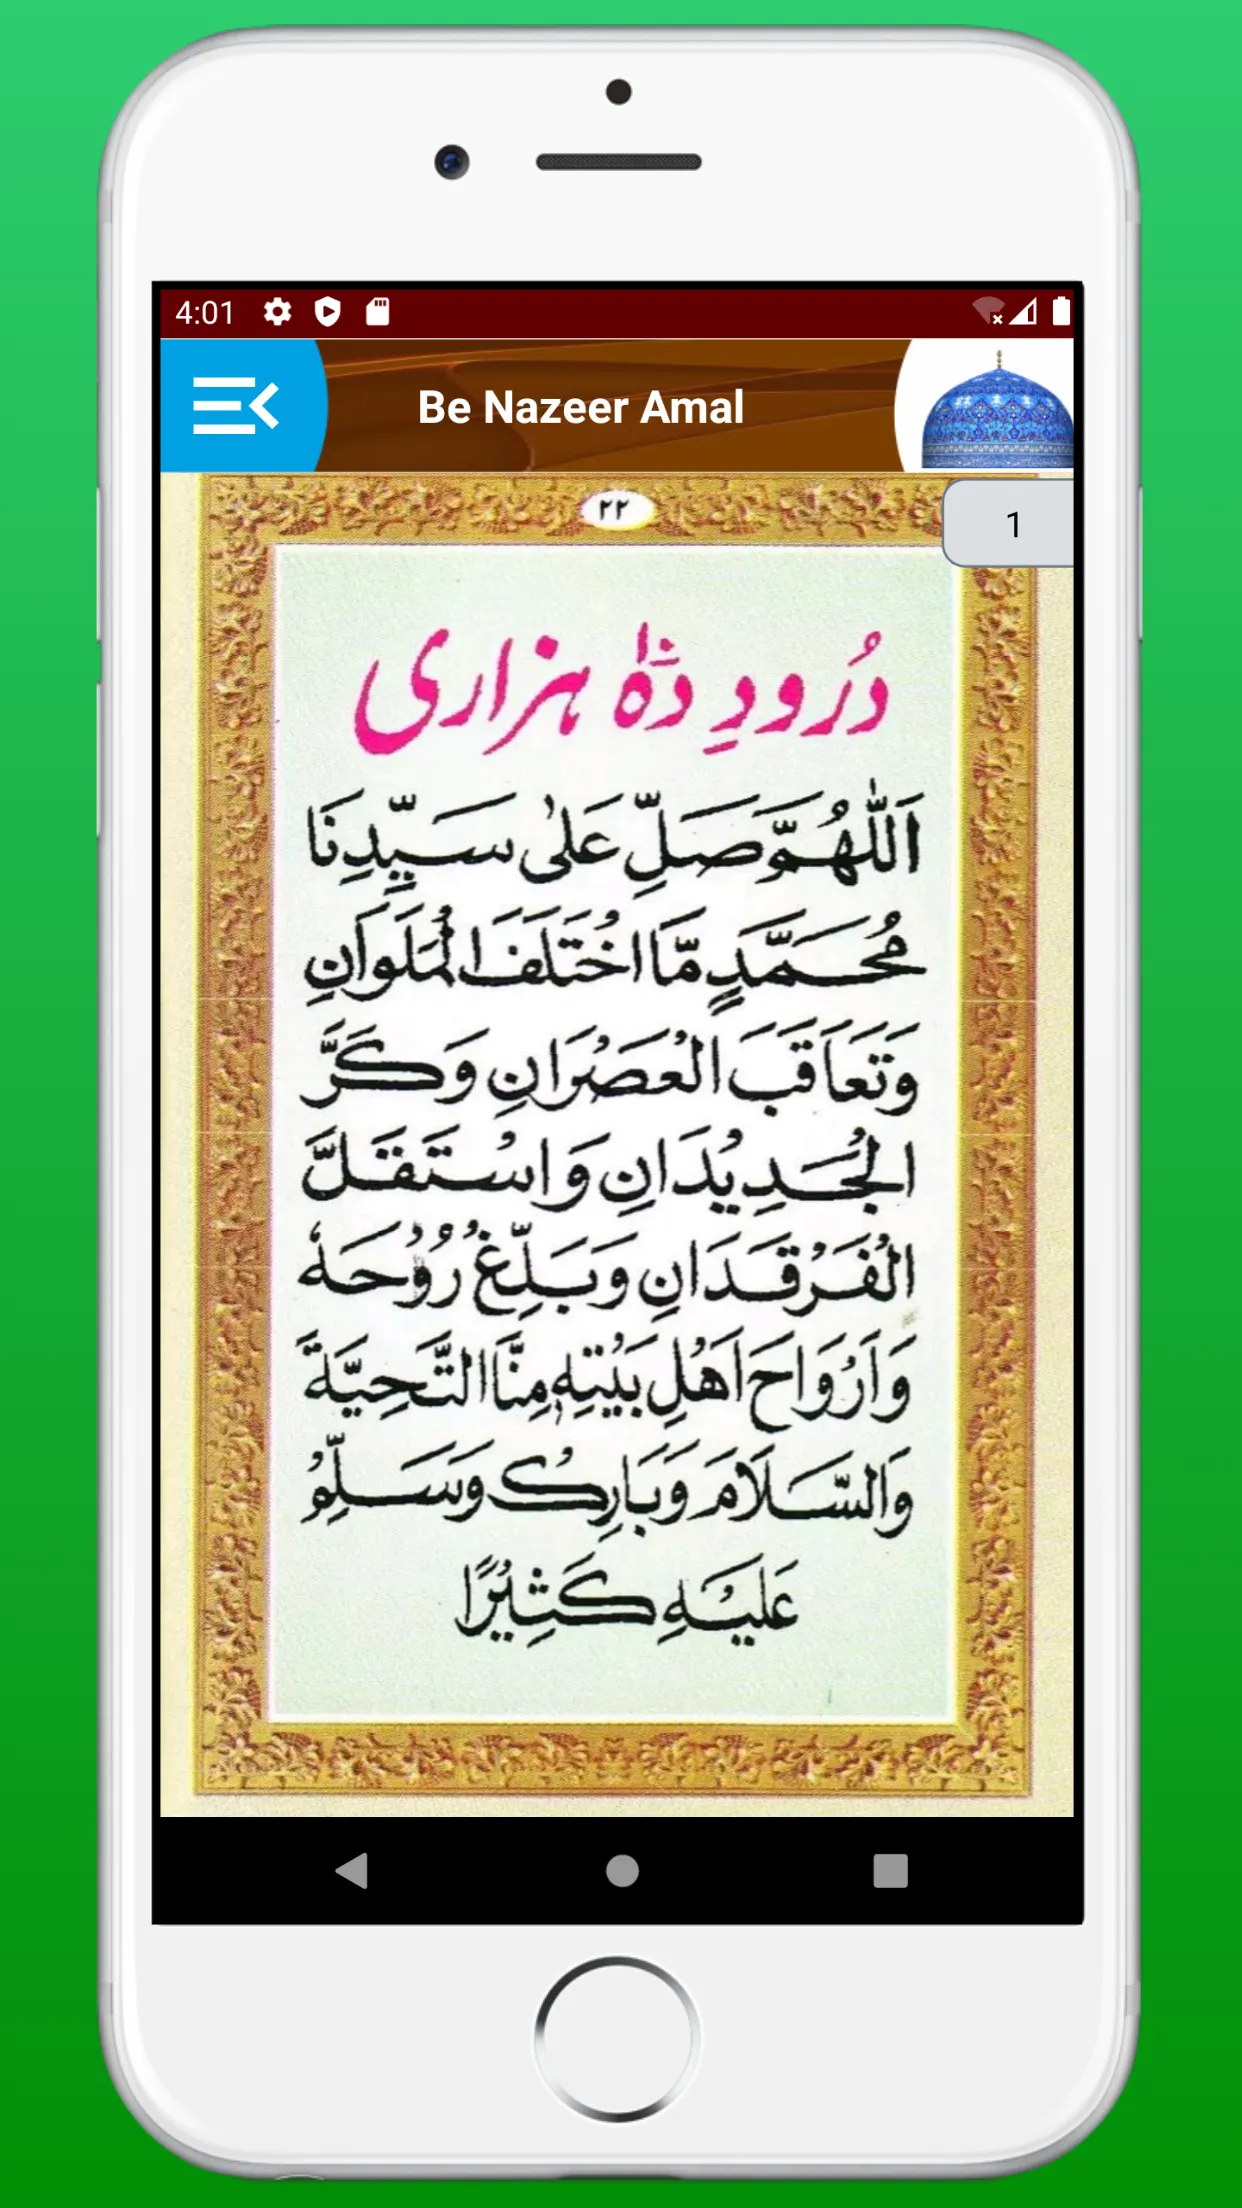 4:01
Be Nazeer Amal
1
٢٢
دُرودِ دَہ ہزاری
اَللّٰهُمَّ صَلِّ عَلٰى سَيِّدِنَا
مُحَمَّدٍ مَّا اخْتَلَفَ الْمَلَوَانِ
وَتَعَاقَبَ الْعَصْرَانِ وَكَرَّ
الْجَدِيْدَانِ وَاسْتَقَلَّ
الْفَرْقَدَانِ وَبَلِّغْ رُوْحَهٗ
وَاَرْوَاحَ اَهْلِ بَيْتِهٖ مِنَّا التَّحِيَّةَ
وَالسَّلَامَ وَبَارِكْ وَسَلِّمْ
عَلَيْهِ كَثِيْرًا